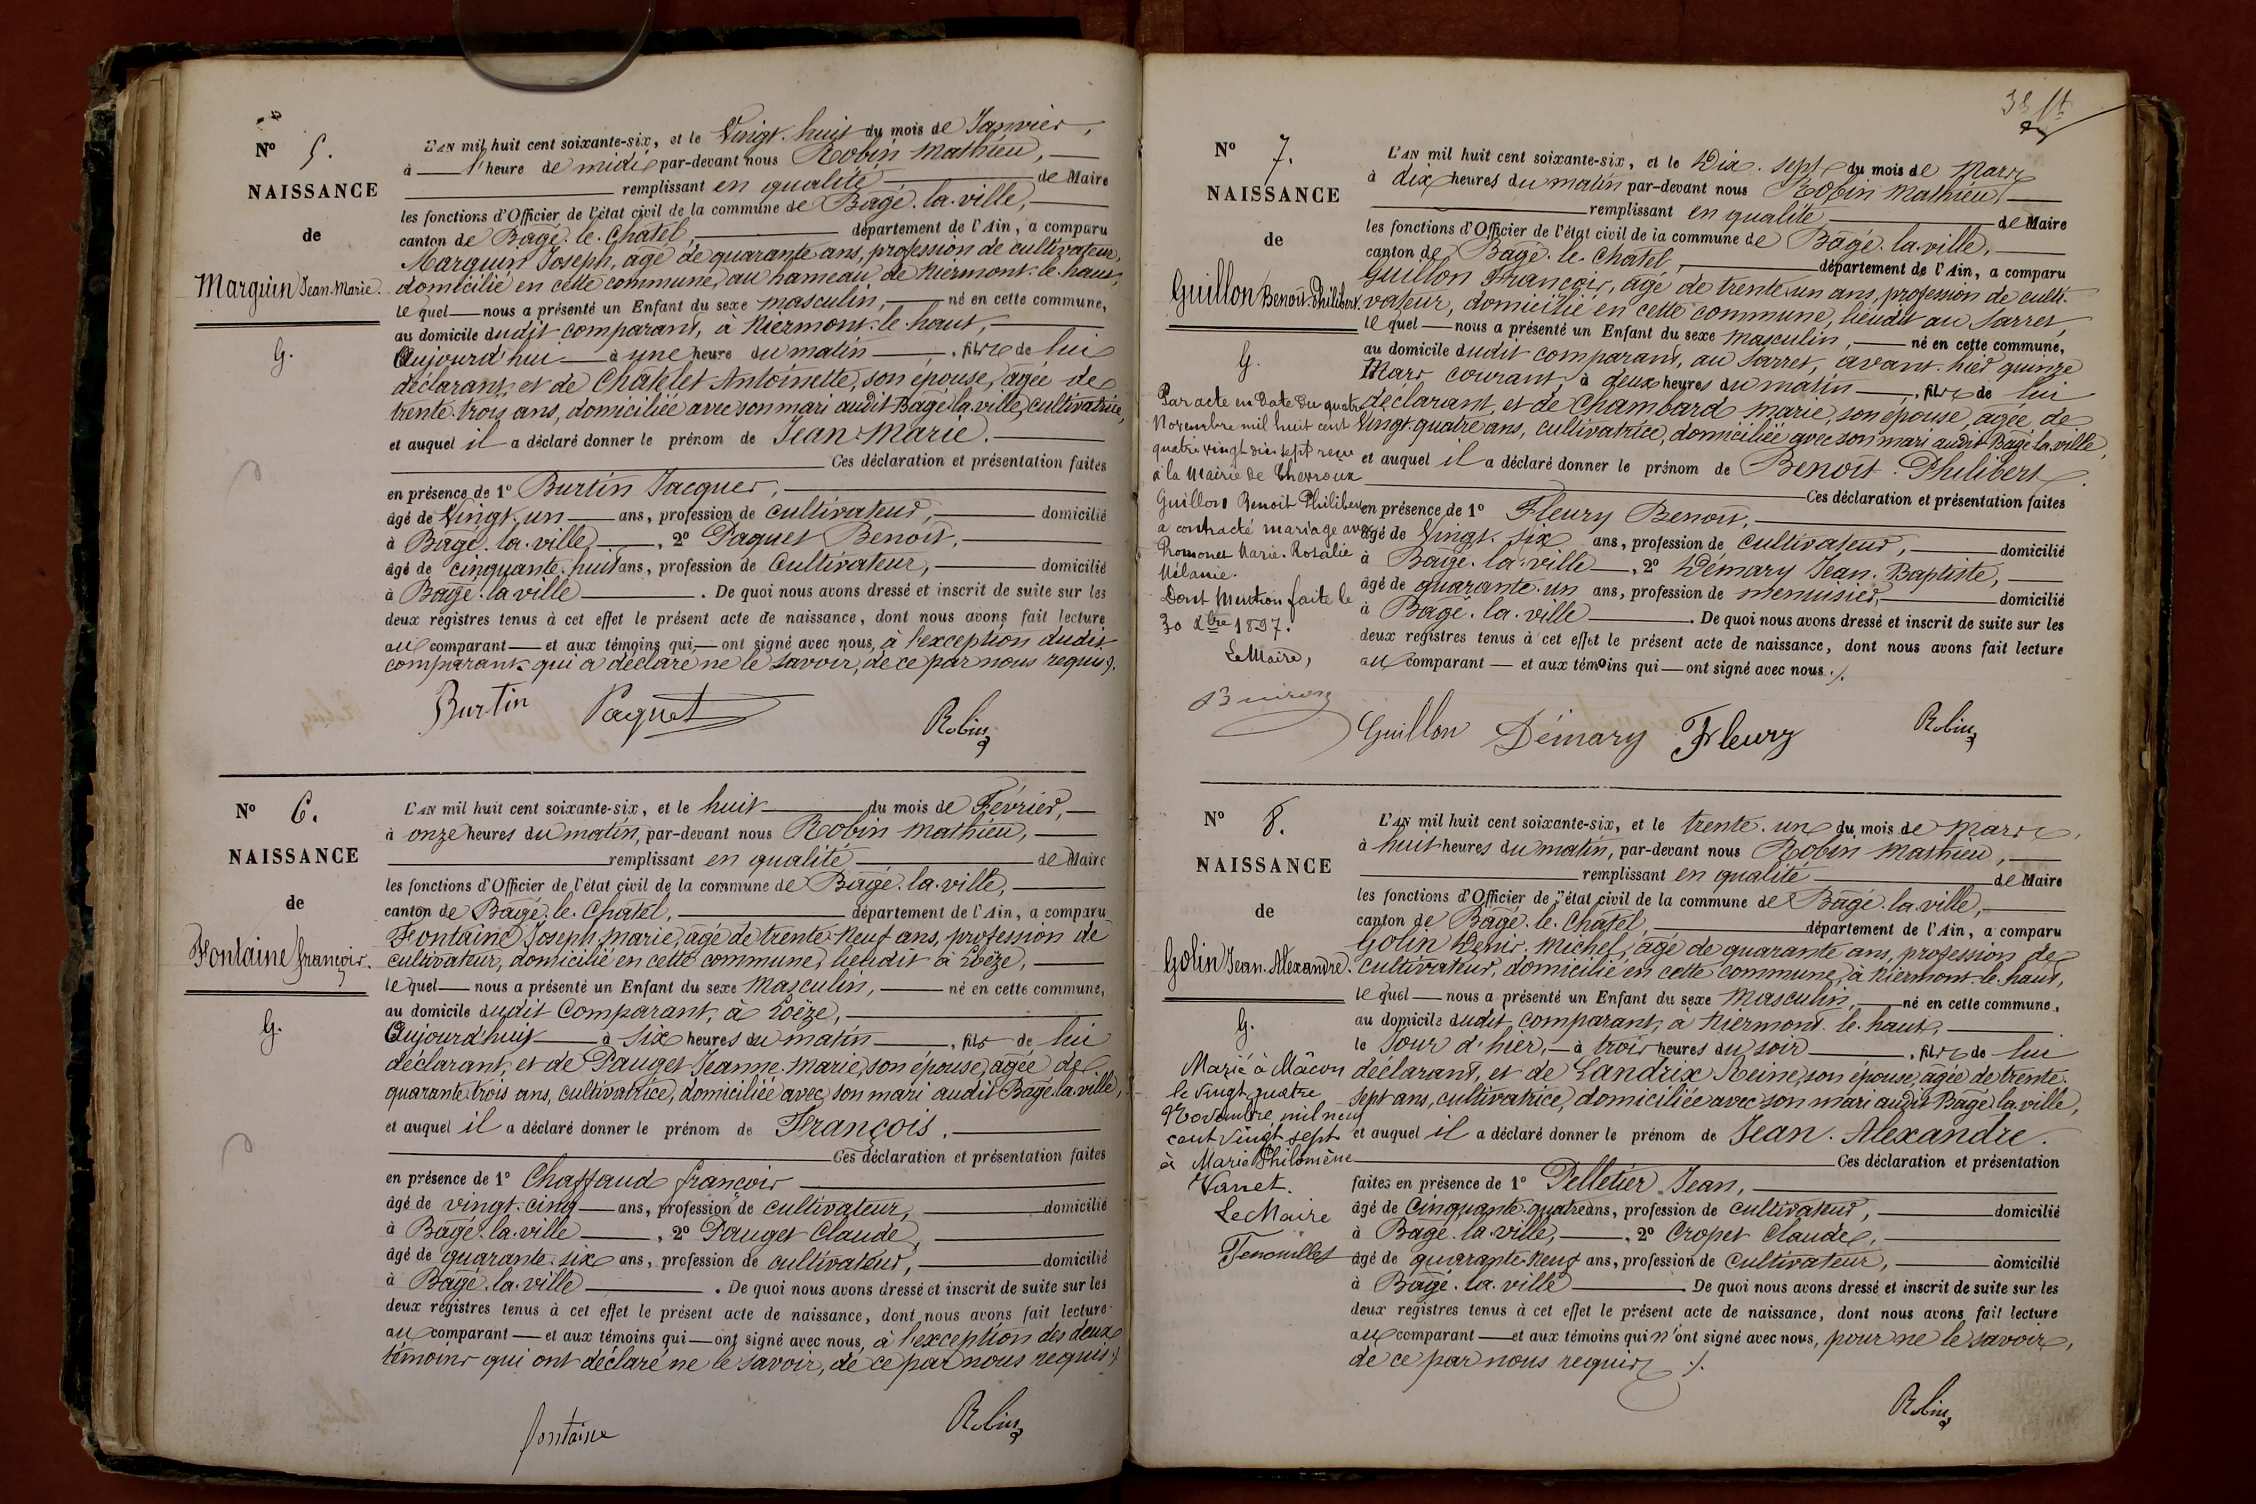 N° 5.
NAISSANCE
de
Marguin Jean-Marie.
G.
L'AN mil huit cent soixante-six, et le Vingt-huit du mois de Janvier,
à l'heure de midi par-devant nous Robin Mathieu,
remplissant en qualité de Maire
les fonctions d'Officier de l'état civil de la commune de Bâgé-la-ville,
canton de Bâgé-le-Châtel, département de l'Ain, a comparu
Marguin Joseph, âgé de quarante ans, profession de cultivateur,
domicilié en cette commune, au hameau de Niermont-le-haut,
le quel nous a présenté un Enfant du sexe masculin, né en cette commune,
au domicile dudit comparant, à Niermont-le-haut,
Aujourd'hui à une heure du matin, fils de lui
déclarant, et de Châtelet Antoinette, son épouse, âgée de
trente-trois ans, domiciliée avec son mari audit Bâgé-la-ville, cultivatrice,
et auquel il a déclaré donner le prénom de Jean-Marie.
Ces déclaration et présentation faites
en présence de 1° Burtin Jacques,
âgé de Vingt-un ans, profession de cultivateur, domicilié
à Bâgé-la-ville, 2° Paquet Benoit,
âgé de cinquante-huit ans, profession de Cultivateur, domicilié
à Bâgé-la-ville. De quoi nous avons dressé et inscrit de suite sur les
deux registres tenus à cet effet le présent acte de naissance, dont nous avons fait lecture
au comparant et aux témoins qui ont signé avec nous, à l'exception dudit
comparant qui a déclaré ne le savoir, de ce par nous requis ./.
Burtin Paquet Robin
N° 6.
NAISSANCE
de
Fontaine françois.
G.
L'AN mil huit cent soixante-six, et le huit du mois de Février,
à onze heures du matin, par-devant nous Robin Mathieu,
remplissant en qualité de Maire
les fonctions d'Officier de l'état civil de la commune de Bâgé-la-ville,
canton de Bâgé-le-Châtel, département de l'Ain, a comparu
Fontaine Joseph-Marie, âgé de trente-neuf ans, profession de
cultivateur, domicilié en cette commune, lieudit à Loëze,
le quel nous a présenté un Enfant du sexe Masculin, né en cette commune,
au domicile dudit Comparant, à Loëze,
Aujourd'hui à six heures du matin, fils de lui
déclarant, et de Pauget Jeanne-Marie, son épouse, âgée de
quarante-trois ans, cultivatrice, domiciliée avec son mari audit Bâgé-la-ville,
et auquel il a déclaré donner le prénom de François.
Ces déclaration et présentation faites
en présence de 1° Chaffaud françois
âgé de vingt-cinq ans, profession de cultivateur, domicilié
à Bâgé-la-ville, 2° Pauget Claude,
âgé de quarante-six ans, profession de cultivateur, domicilié
à Bâgé-la-ville. De quoi nous avons dressé et inscrit de suite sur les
deux registres tenus à cet effet le présent acte de naissance, dont nous avons fait lecture
au comparant et aux témoins qui ont signé avec nous, à l'exception des deux
témoins qui ont déclaré ne le savoir, de ce par nous requis ./.
fontaine Robin
N° 7.
NAISSANCE
de
Guillon Benoît-Philibert.
G.
Par acte en date du quatre
Novembre mil huit cent
quatre vingt dix sept reçu
à la Mairie de Chevroux
Guillon Benoit Philibert
a contracté mariage avec
Promonet Marie-Rosalie
Mélanie.
Dont Mention faite le
30 Xbre 1897.
Le Maire,
L'AN mil huit cent soixante-six, et le Dix-sept du mois de Mars
à dix heures du matin par-devant nous Robin Mathieu,
remplissant en qualité de Maire
les fonctions d'Officier de l'état civil de la commune de Bâgé-la-ville,
canton de Bâgé-le-Châtel, département de l'Ain, a comparu
Guillon François, âgé de trente-un ans, profession de culti-
vateur, domicilié en cette commune, lieudit au Sarret,
le quel nous a présenté un Enfant du sexe Masculin, né en cette commune,
au domicile dudit comparant, au Sarret, avant-hier quinze
Mars courant, à deux heures du matin, fils de lui
déclarant, et de Chambard Marie, son épouse, âgée de
Vingt-quatre ans, cultivatrice, domiciliée avec son mari audit Bâgé-la-ville,
et auquel il a déclaré donner le prénom de Benoît-Philibert.
Ces déclaration et présentation faites
en présence de 1° Fleury Benoit,
âgé de Vingt-six ans, profession de cultivateur, domicilié
à Bâgé-la-ville, 2° Démary Jean-Baptiste,
âgé de quarante-un ans, profession de menuisier, domicilié
à Bâgé-la-ville. De quoi nous avons dressé et inscrit de suite sur les
deux registres tenus à cet effet le présent acte de naissance, dont nous avons fait lecture
au comparant et aux témoins qui ont signé avec nous ./.
Guillon Démary Fleury Robin
N° 8.
NAISSANCE
de
Golin Jean-Alexandre.
G.
Marié à Mâcon
le vingt quatre
Novembre mil neuf
cent vingt sept
à Marie Philomène
Vanet.
Le Maire
L'AN mil huit cent soixante-six, et le trente-un du mois de Mars,
à huit heures du matin, par-devant nous Robin Mathieu,
remplissant en qualité de Maire
les fonctions d'Officier de l'état civil de la commune de Bâgé-la-ville,
canton de Bâgé-le-Châtel, département de l'Ain, a comparu
Golin Denis-Michel, âgé de quarante ans, profession de
cultivateur, domicilié en cette commune, à Niermont-le-haut,
le quel nous a présenté un Enfant du sexe Masculin, né en cette commune,
au domicile dudit comparant, à Niermont-le-haut,
le Jour d'hier, à trois heures du soir, fils de lui
déclarant, et de Landrix Reine, son épouse, âgée de trente-
sept ans, cultivatrice, domiciliée avec son mari audit Bâgé-la-ville,
et auquel il a déclaré donner le prénom de Jean-Alexandre.
Ces déclaration et présentation
faites en présence de 1° Pelletier Jean,
âgé de Cinquante-quatre ans, profession de cultivateur, domicilié
à Bâgé-la-ville, 2° Cropet Claude,
âgé de quarante-neuf ans, profession de Cultivateur, domicilié
à Bâgé-la-ville. De quoi nous avons dressé et inscrit de suite sur les
deux registres tenus à cet effet le présent acte de naissance, dont nous avons fait lecture
au comparant et aux témoins qui n'ont signé avec nous, pour ne le savoir,
de ce par nous requis ./.
Robin